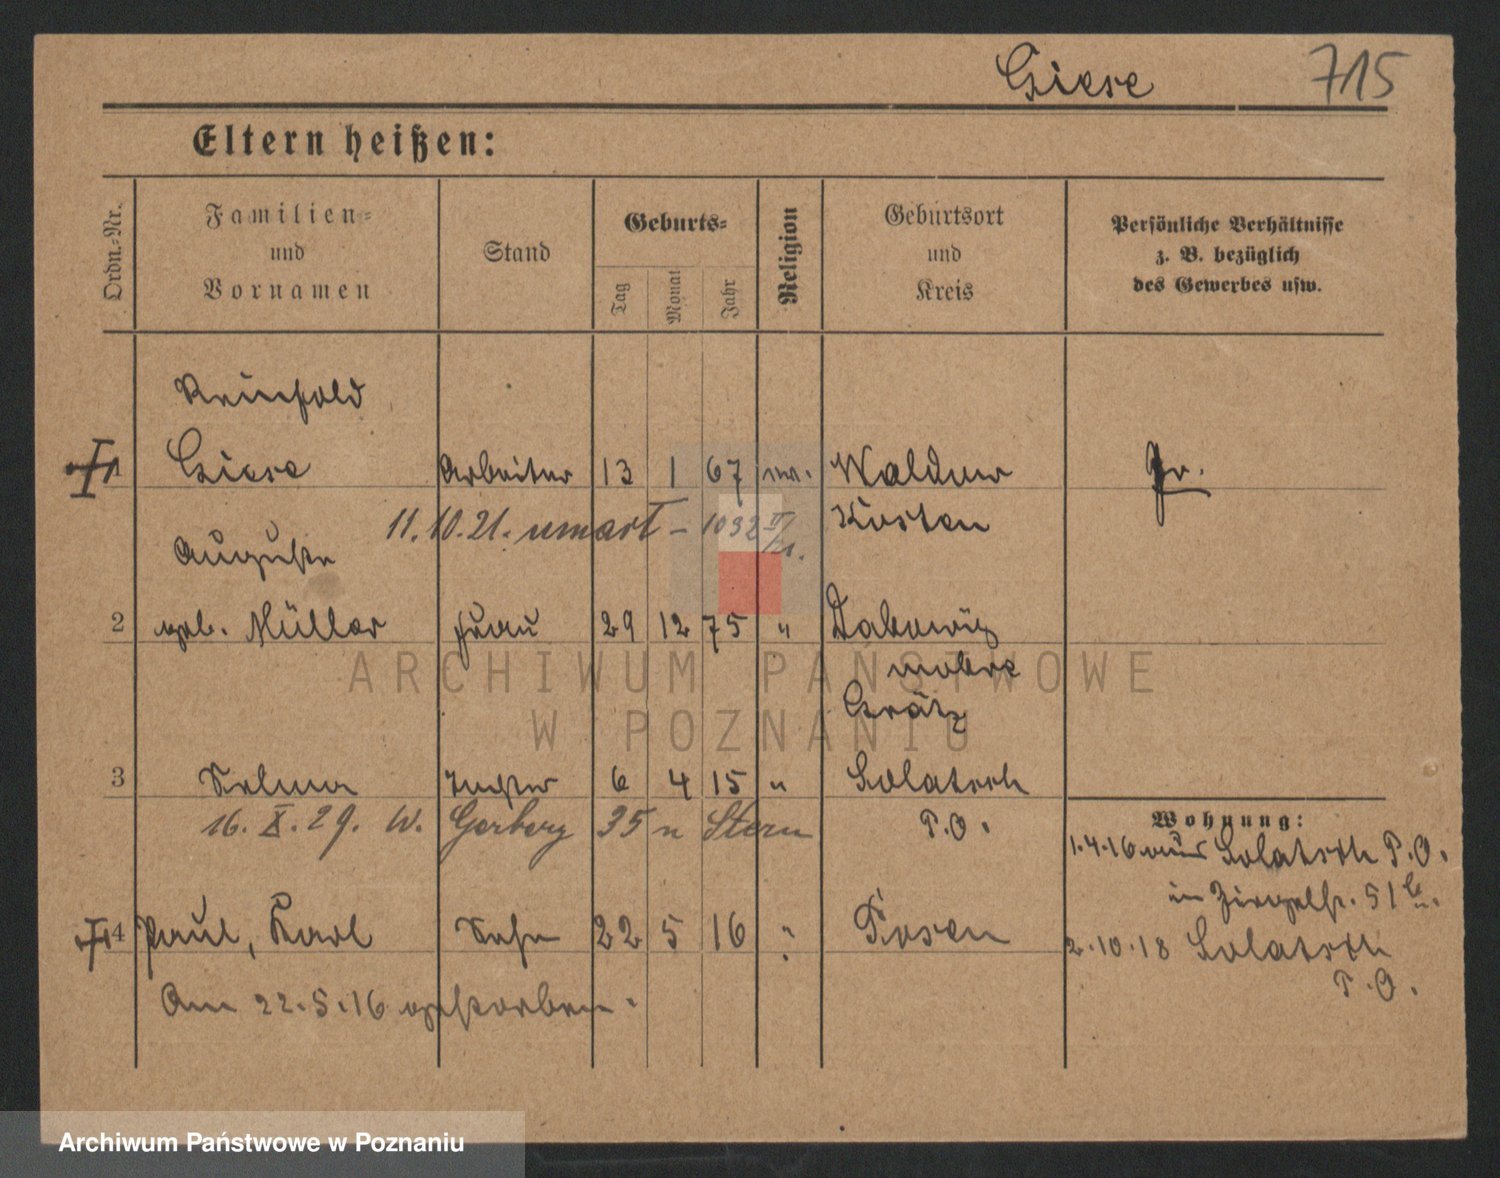 Giese 715
Eltern heißen:
Ordn.-Nr.
Familien-
und
Vornamen
Stand
Geburts-
Tag
Monat
Jahr
Religion
Geburtsort
und
Kreis
Persönliche Verhältnisse
z. B. bezüglich
des Gewerbes usw.
Reinhold
1 Giese Arbeiter 13 1 67 Waldau Pr.
Kosten
11.10.21. 1032
Auguste
2 geb. Müller Frau 29 12 75 "
Grätz
3 Selma Tochter 6 4 15 " Solatsch
P.O.
16. X. 29. W. Gerberg 35 n Stern
Wohnung:
1.4.16 aus Solatsch P.O.
in Ziegelstr. 51
4 Paul, Karl Sohn 22 5 16 " Posen
2.10.18 Solatsch
P.O.
Am 22.5.16 gestorben.
ARCHIWUM PAŃSTWOWE
W POZNANIU
Archiwum Państwowe w Poznaniu